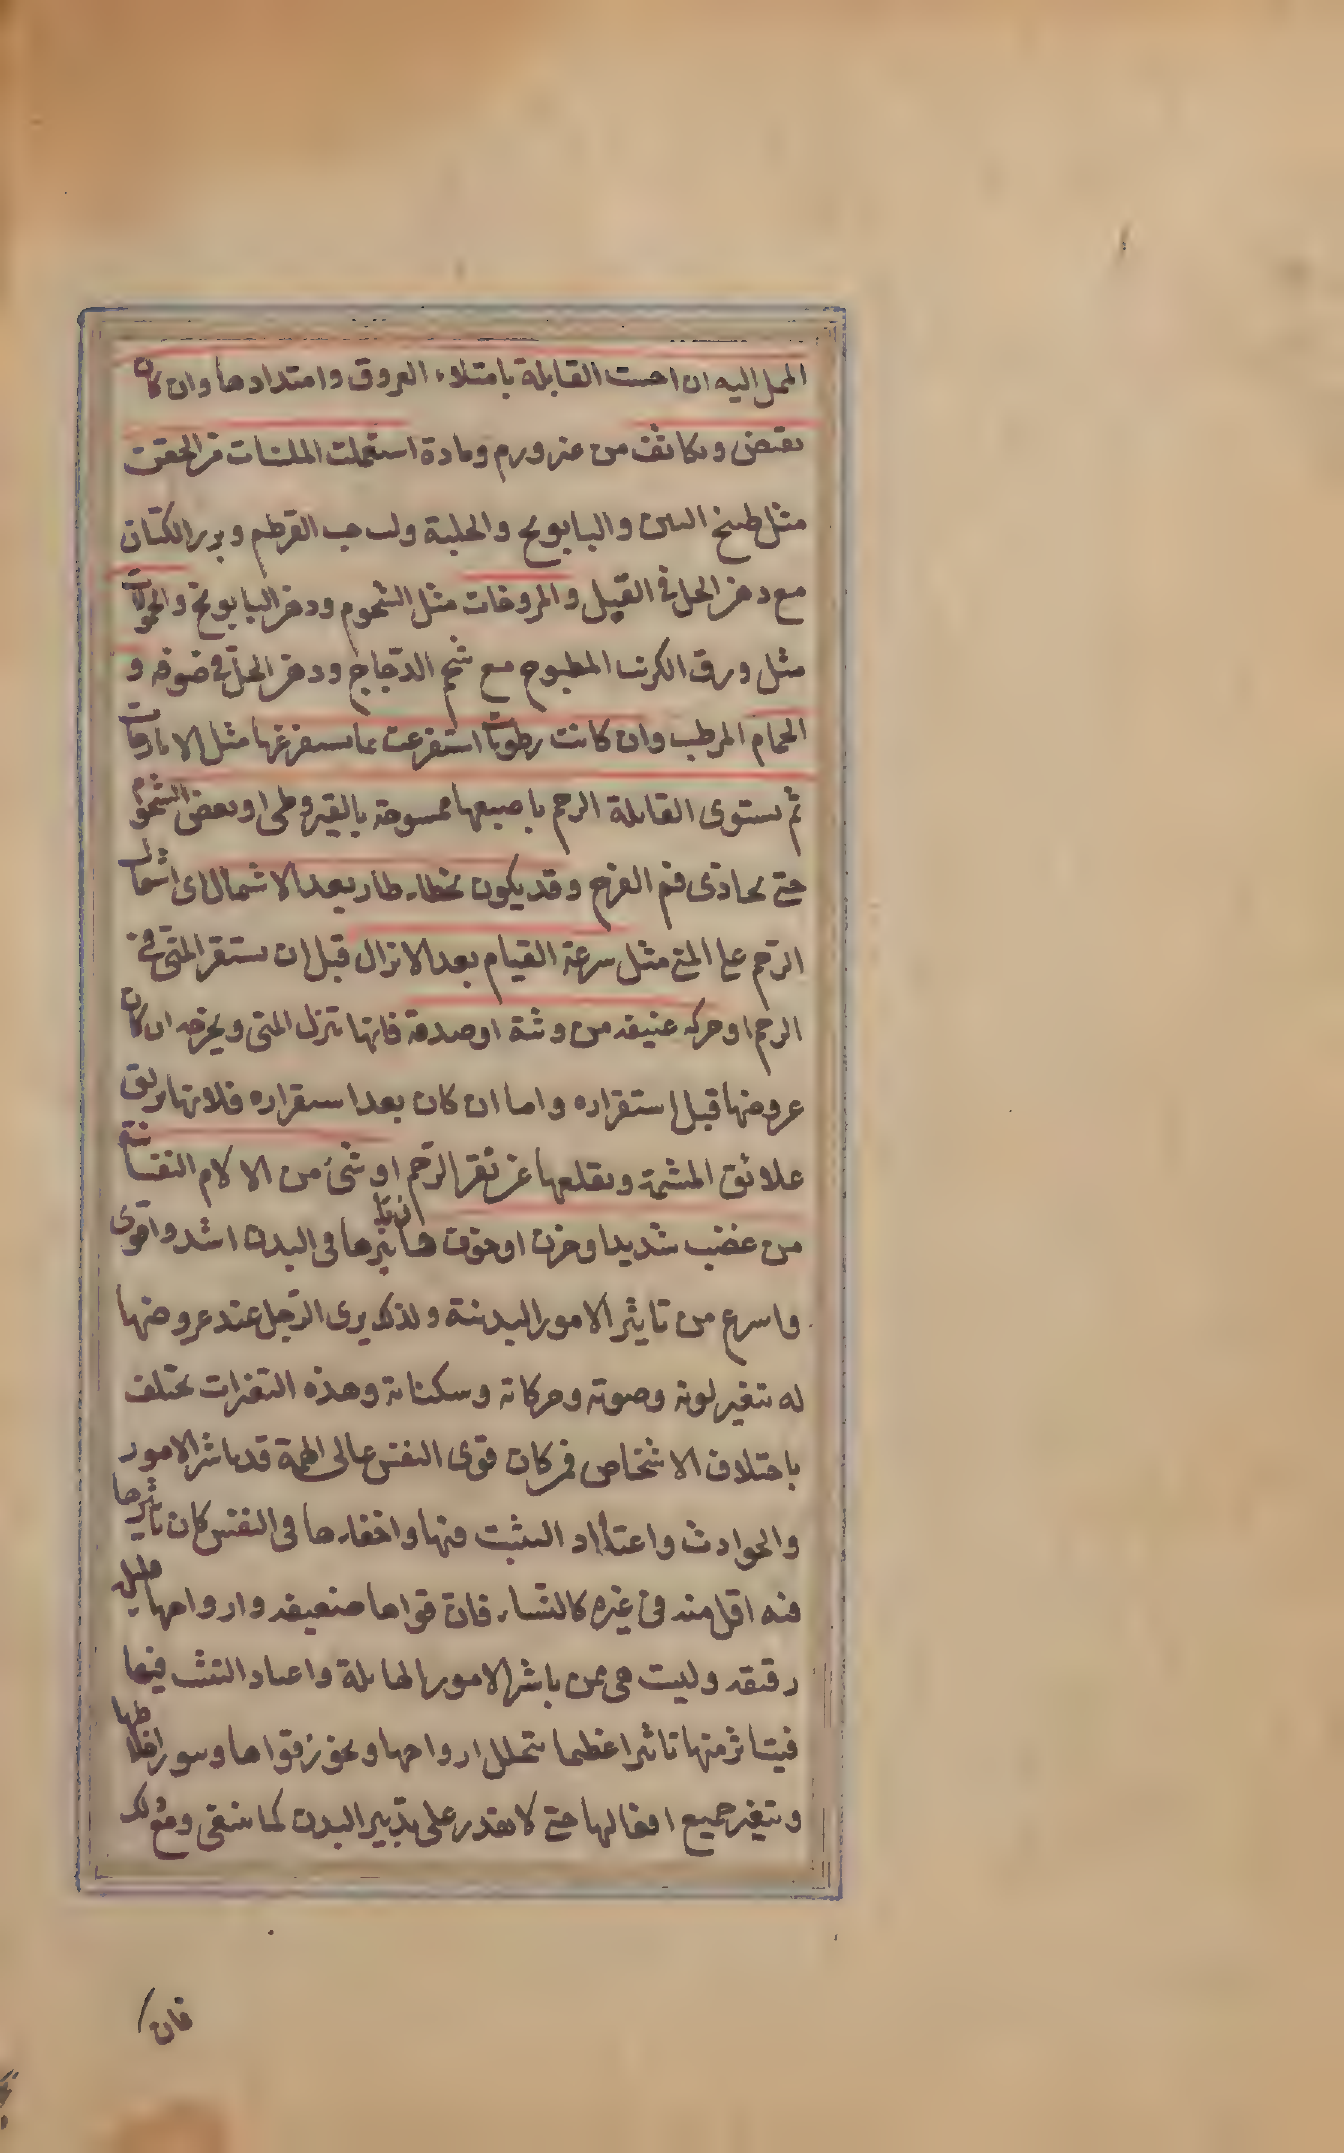 الممل اليه ان احست القابلة بامتلاء العروق وامتدادها وان كان
تقبض وتكاثف من غير ورم ومادة استعملت الملينات من الحقن
مثل طبيخ التين والبابونج والحلبة ولب حب القرطم وبزر الكتان
مع دهن الحل في القبل والمروخات مثل الشحوم ودهن البابونج والحمولات
مثل ورق الكرنب المطبوخ مع شحم الدجاج ودهن الحل في صوفه و
الحمام المرطب وان كانت رطوبات استفرغت بما يستفرغها مثل الايارجات
ثم تستوى القابلة الرحم باصبعها ممسوحة بالقيروطى او بعض الشحوم
حتى يحاذى فم الفرج وقد يكون لخطاء طار بعد الاشتمال اى اشتمال
الرحم على المنى مثل سرعة القيام بعد الانزال قبل ان يستقر المنى في
الرحم او حركه عنيفه من وثبة او صدمة فانها تنزل المنى ويخرجه ان كان
عروضها قبل استقراره واما ان كان بعد استقراره فلانها يزلق
علائق المشيمة وتقلعها عن نقر الرحم او شئ من الالام النفسانية
من غضب شديد او حزن او خوف فان تاثيرها في البدن اشد واقوى
واسرع من تاثير الامور البدنية ولذلك يرى الرجل عند عروضها
له يتغير لونه وصوته وحركاته وسكناته وهذه التغيرات يختلف
باختلاف الاشخاص فمن كان قوى النفس عالى الهمة قد باشر الامور
والحوادث واعتاد التثبت فيها واخفاءها في النفس كان تاثيرها
فيه اقل منه في غيره كالنساء فان قواها ضعيفه وارواحها قليل
رقيقه وليست هى ممن باشر الامور الهايلة واعتاد التثبت فيها
فيتاثر منها تاثيرا عظيما يتحلل ارواحها ويخور قواها وسور اخلاطها
ويتغير جميع افعالها حتى لا يقدر على تدبير البدن كما ينبغى ومع ذلك
فان